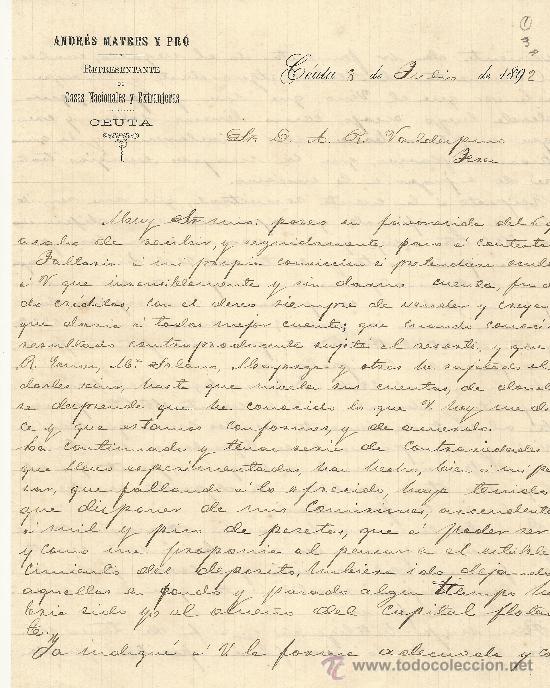 ANDRÉS MATRES Y PRÓ
REPRESENTANTE
DE
Casas Nacionales y Extranjeras
CEUTA
Céuta 3 de Julio de 1892
Sr. D. A. R. Valdespino
Jerez
Muy Sr mio: poseo su favorecida del
acabo de recibir, y seguidamente paso á contestar
Faltaria á mi propia conviccion si pretendiese
á V que insensiblemente y sin darme cuenta,
de creditos, con el deseo siempre de vender y
que daria á todos mejor cuenta; que cuando
resultado contraproducente sujeté el resorte, y que
R. y otros he sujetado el
darles sino, hasta que nivela sus cuentas, de donde
se desprende que he conocido lo que V. hoy me
ce y que estamos conformes, y de acuerdo.
La continuada y tenaz serie de contrariedades
que llevo esperimentadas, ha hecho, bien á mi pe
sar, que faltando á lo ofrecido, haya tenido
que disponer de mis Comisiones, ascendentes
á mil y pico de pesetas, que á poder ser
y como me proponia al pensar en el estable
cimiento del deposito, hubiera ido dejando
aquellas en fondo y pasado algun tiempo hu
biera sido yo el dueño del capital flotan
te.
Ya indiqué á V la forma adecuada y
todocoleccion.net